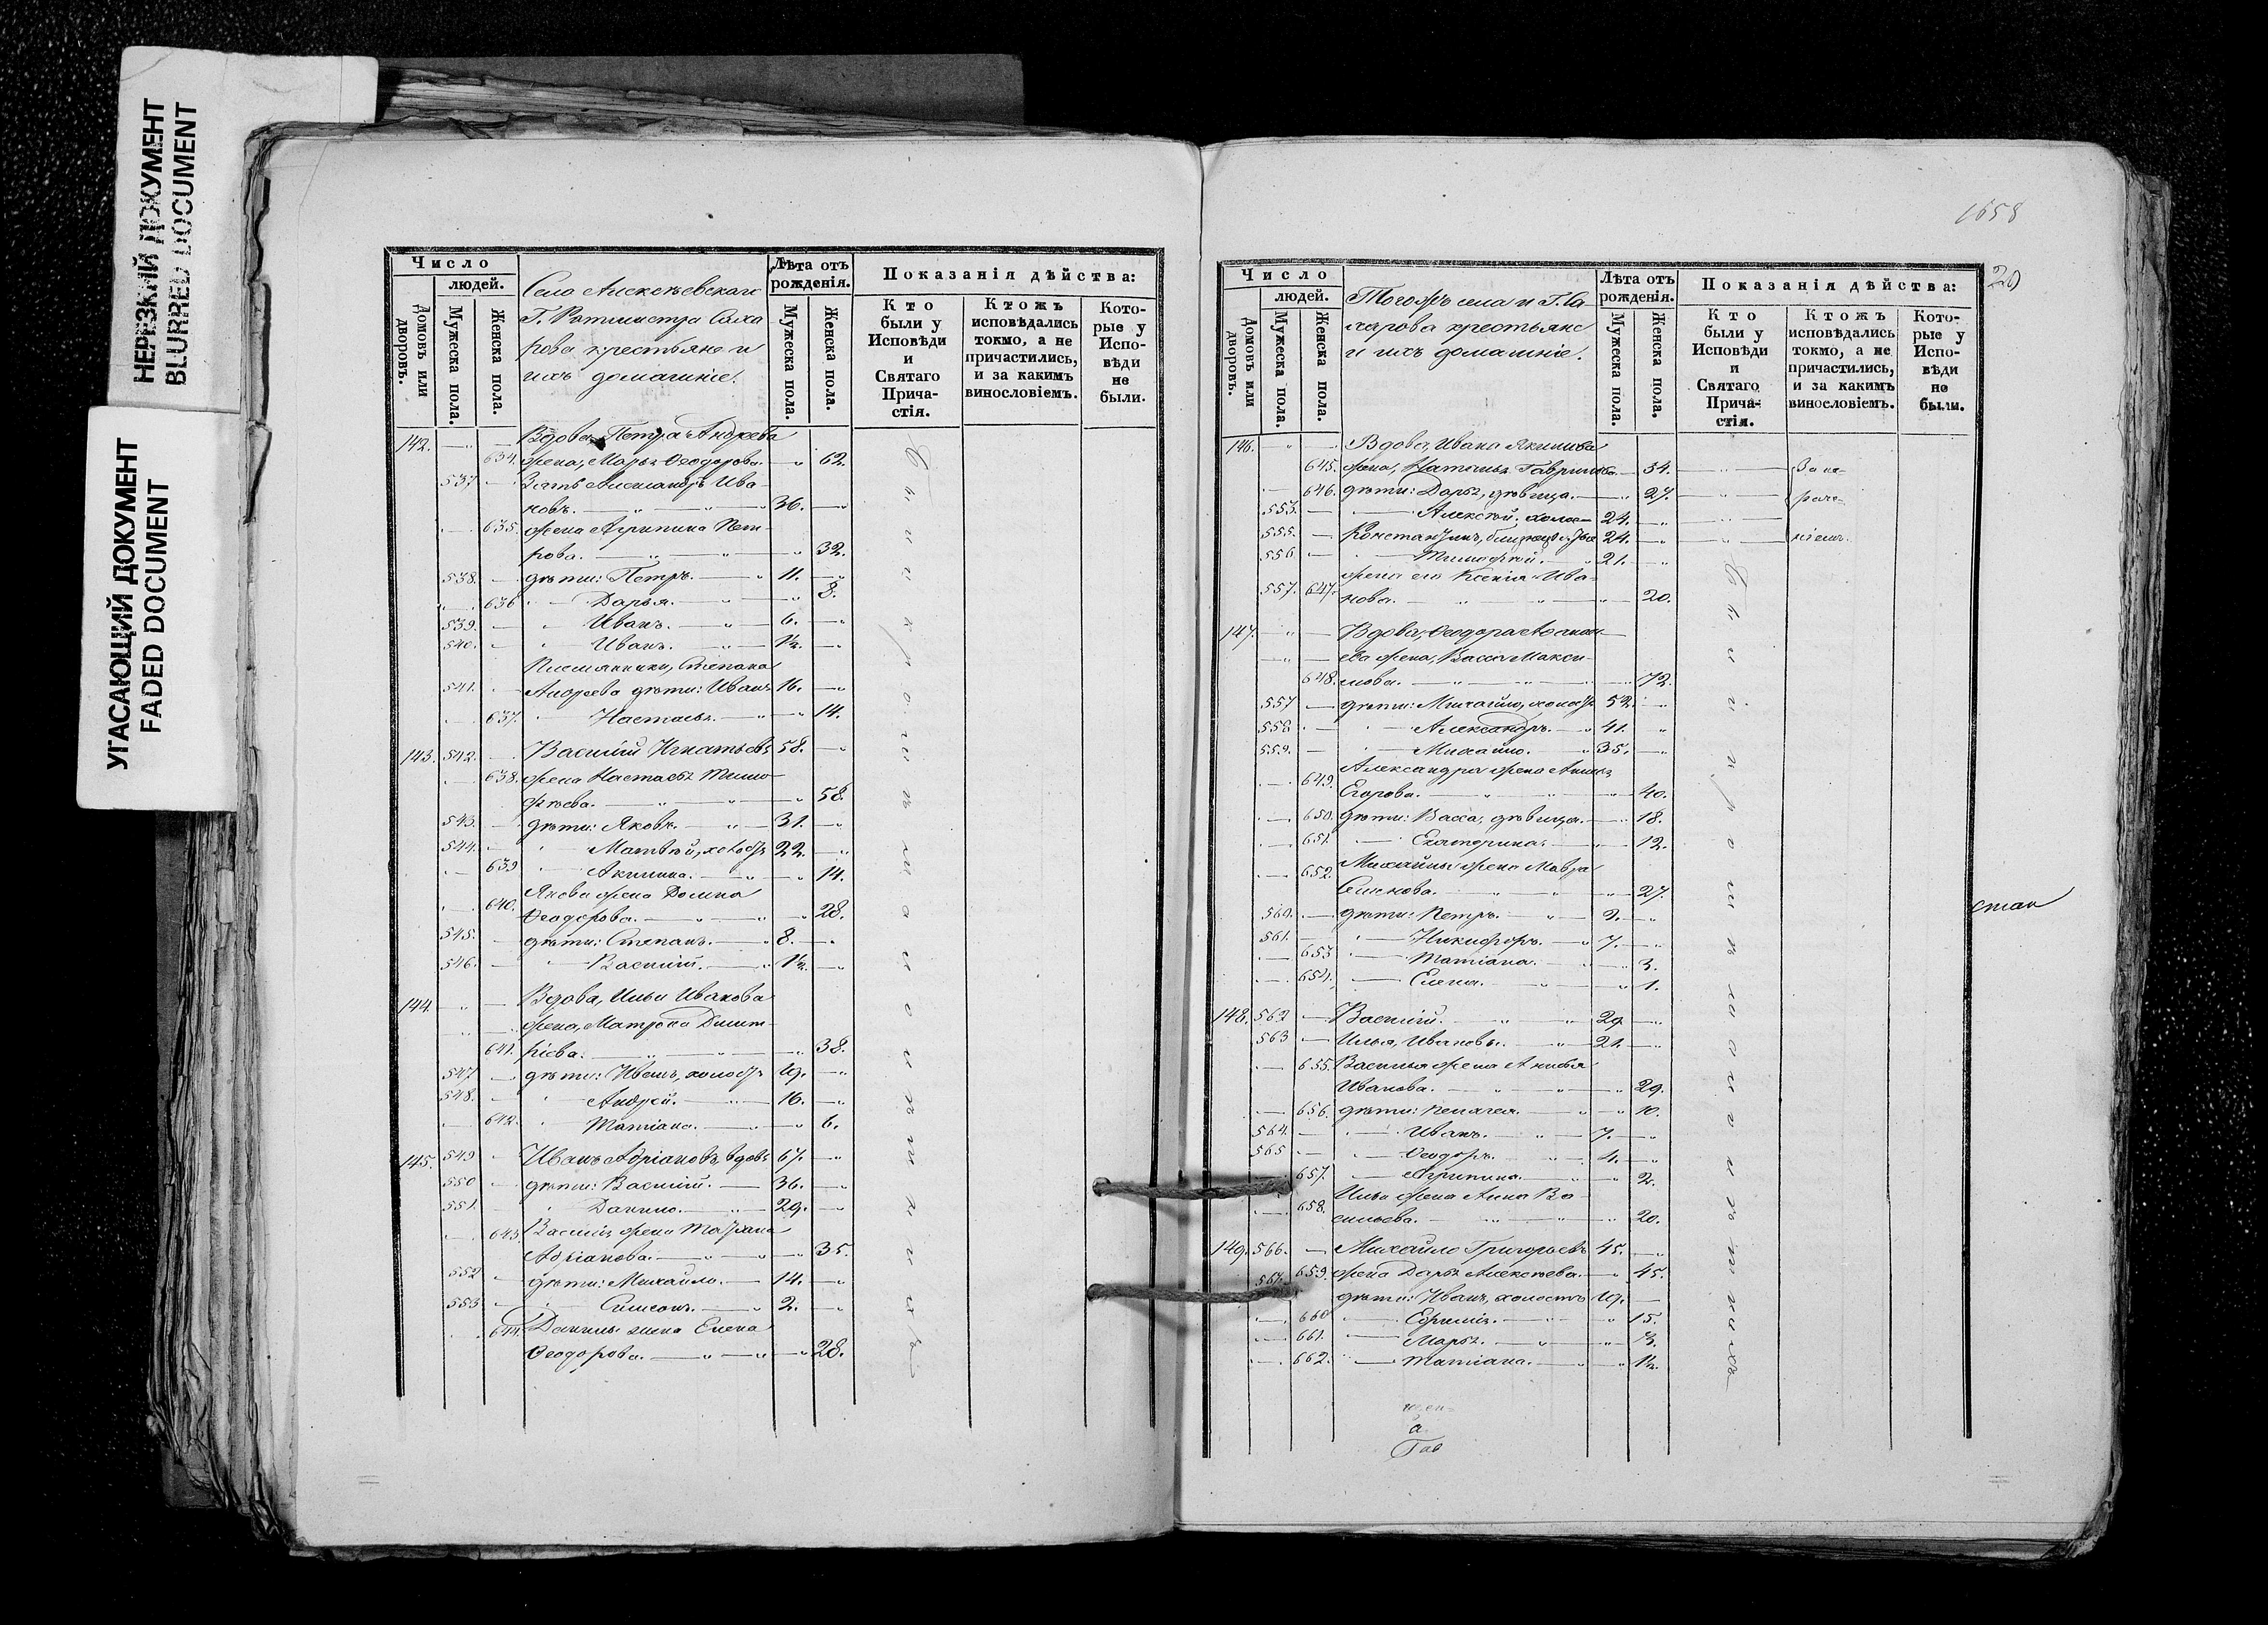 НЕРЕЗКИЙ ДОКУМЕНТ
BLURRED DOCUMENT
УГАСАЮЩИЙ ДОКУМЕНТ
FADED DOCUMENT
Число
людей.
Домовъ или дворовъ.
Мужеска пола.
Женска пола.
Село Алексѣевскаго
Г. Ротмистра Саха
рова крестьяне и
ихъ домашніе.
Лѣта отъ рожденія.
Мужеска пола.
Женска пола.
Показанія дѣйства:
Кто были у Исповѣди и Святаго Причастія.
Ктожъ исповѣдались токмо, а не причастились, и за какимъ винословіемъ.
Которые у Исповѣди не были.
142. Вдова, Петра Андреева
634. жена, Марья Ѳеодорова. 62.
537 Зять Александръ Ива
новъ. 36.
635. жена Агрипина Пет-
рова. 32.
538. дѣти: Петръ. 11.
636 Дарья. 8.
539. Иванъ. 6.
540. Иванъ. 1/2.
Племянники, Степана
541. Андреева дѣти: Иванъ 16.
637. Настасья. 14.
143. 542. Василій Игнатьевъ 58.
638. жена Настасья Тимо-
фѣева. 58.
543. дѣти: Яковъ. 31.
544. Матвѣй, холостъ 22.
639 Акилина. 14.
Якова жена Домна
640. Ѳеодорова. 28.
545. дѣти: Степанъ. 8.
546. Василій. 1/2.
144. Вдова, Ильи Иванова
жена, Матрона Димит-
641. ріева. 38.
547 дѣти: Иванъ, холостъ 19.
548. Андрей. 16.
642. Татіана. 6.
145. 549 Иванъ Адріановъ, вдовъ 67.
550 дѣти: Василій. 36.
551. Данило. 29.
643. Василія жена
Адріанова. 35.
552 дѣти: Михайло. 14.
553 Симеонъ. 2.
644. Данилы жена Елена
Ѳеодорова. 28.
1658
20
Число
людей.
Домовъ или дворовъ.
Мужеска пола.
Женска пола.
Тогожъ села и Г. Са
харова крестьяне
и ихъ домашніе.
Лѣта отъ рожденія.
Мужеска пола.
Женска пола.
Показанія дѣйства:
Кто были у Исповѣди и Святаго Причастія.
Ктожъ исповѣдались токмо, а не причастились, и за какимъ винословіемъ.
Которые у Исповѣди не были.
146. Вдова, Ивана Якимова
645. жена, Наталья Гаврилова. 54. За не-
646. дѣти: Дарья, дѣвица. 27. раче-
553. Алексѣй, холос- 24.
555. Константинъ, 24. ніемъ.
556 Тимофей. 21.
жена его Ксенія Ива-
557. 647. нова. 20.
147. Вдова, Ѳеодора
ева жена, Васса Макси-
648. мова. 72.
557 дѣти: Михайло, холостъ 52.
558 Александръ. 41.
559. Михайло. 35.
Александра жена Анна
649. Егорова. 40.
650. дѣти: Васса, дѣвица. 18.
651. Екатерина. 12.
Михайлы жена Мавра
652. Семенова. 27.
560. дѣти: Петръ. 9.
561. Никифоръ. 7.
653 Татіана. 3.
654. Елена. 1.
148. 562 Василій. 29.
563 Илья, Ивановы. 21.
655. Василья жена
Иванова. 29.
656. дѣти: Пелагея. 10.
564. Иванъ. 7.
565 Ѳеодоръ. 4.
657. Агрипина. 2.
Ильи жена Анна Ва-
658. сильева. 20.
149. 566. Михайло Григорьевъ 45.
659. жена Дарья Алексѣева. 45.
567. дѣти: Иванъ, холостъ 19.
660 15.
661. Марья. 3.
662. Татіана. 1/2.